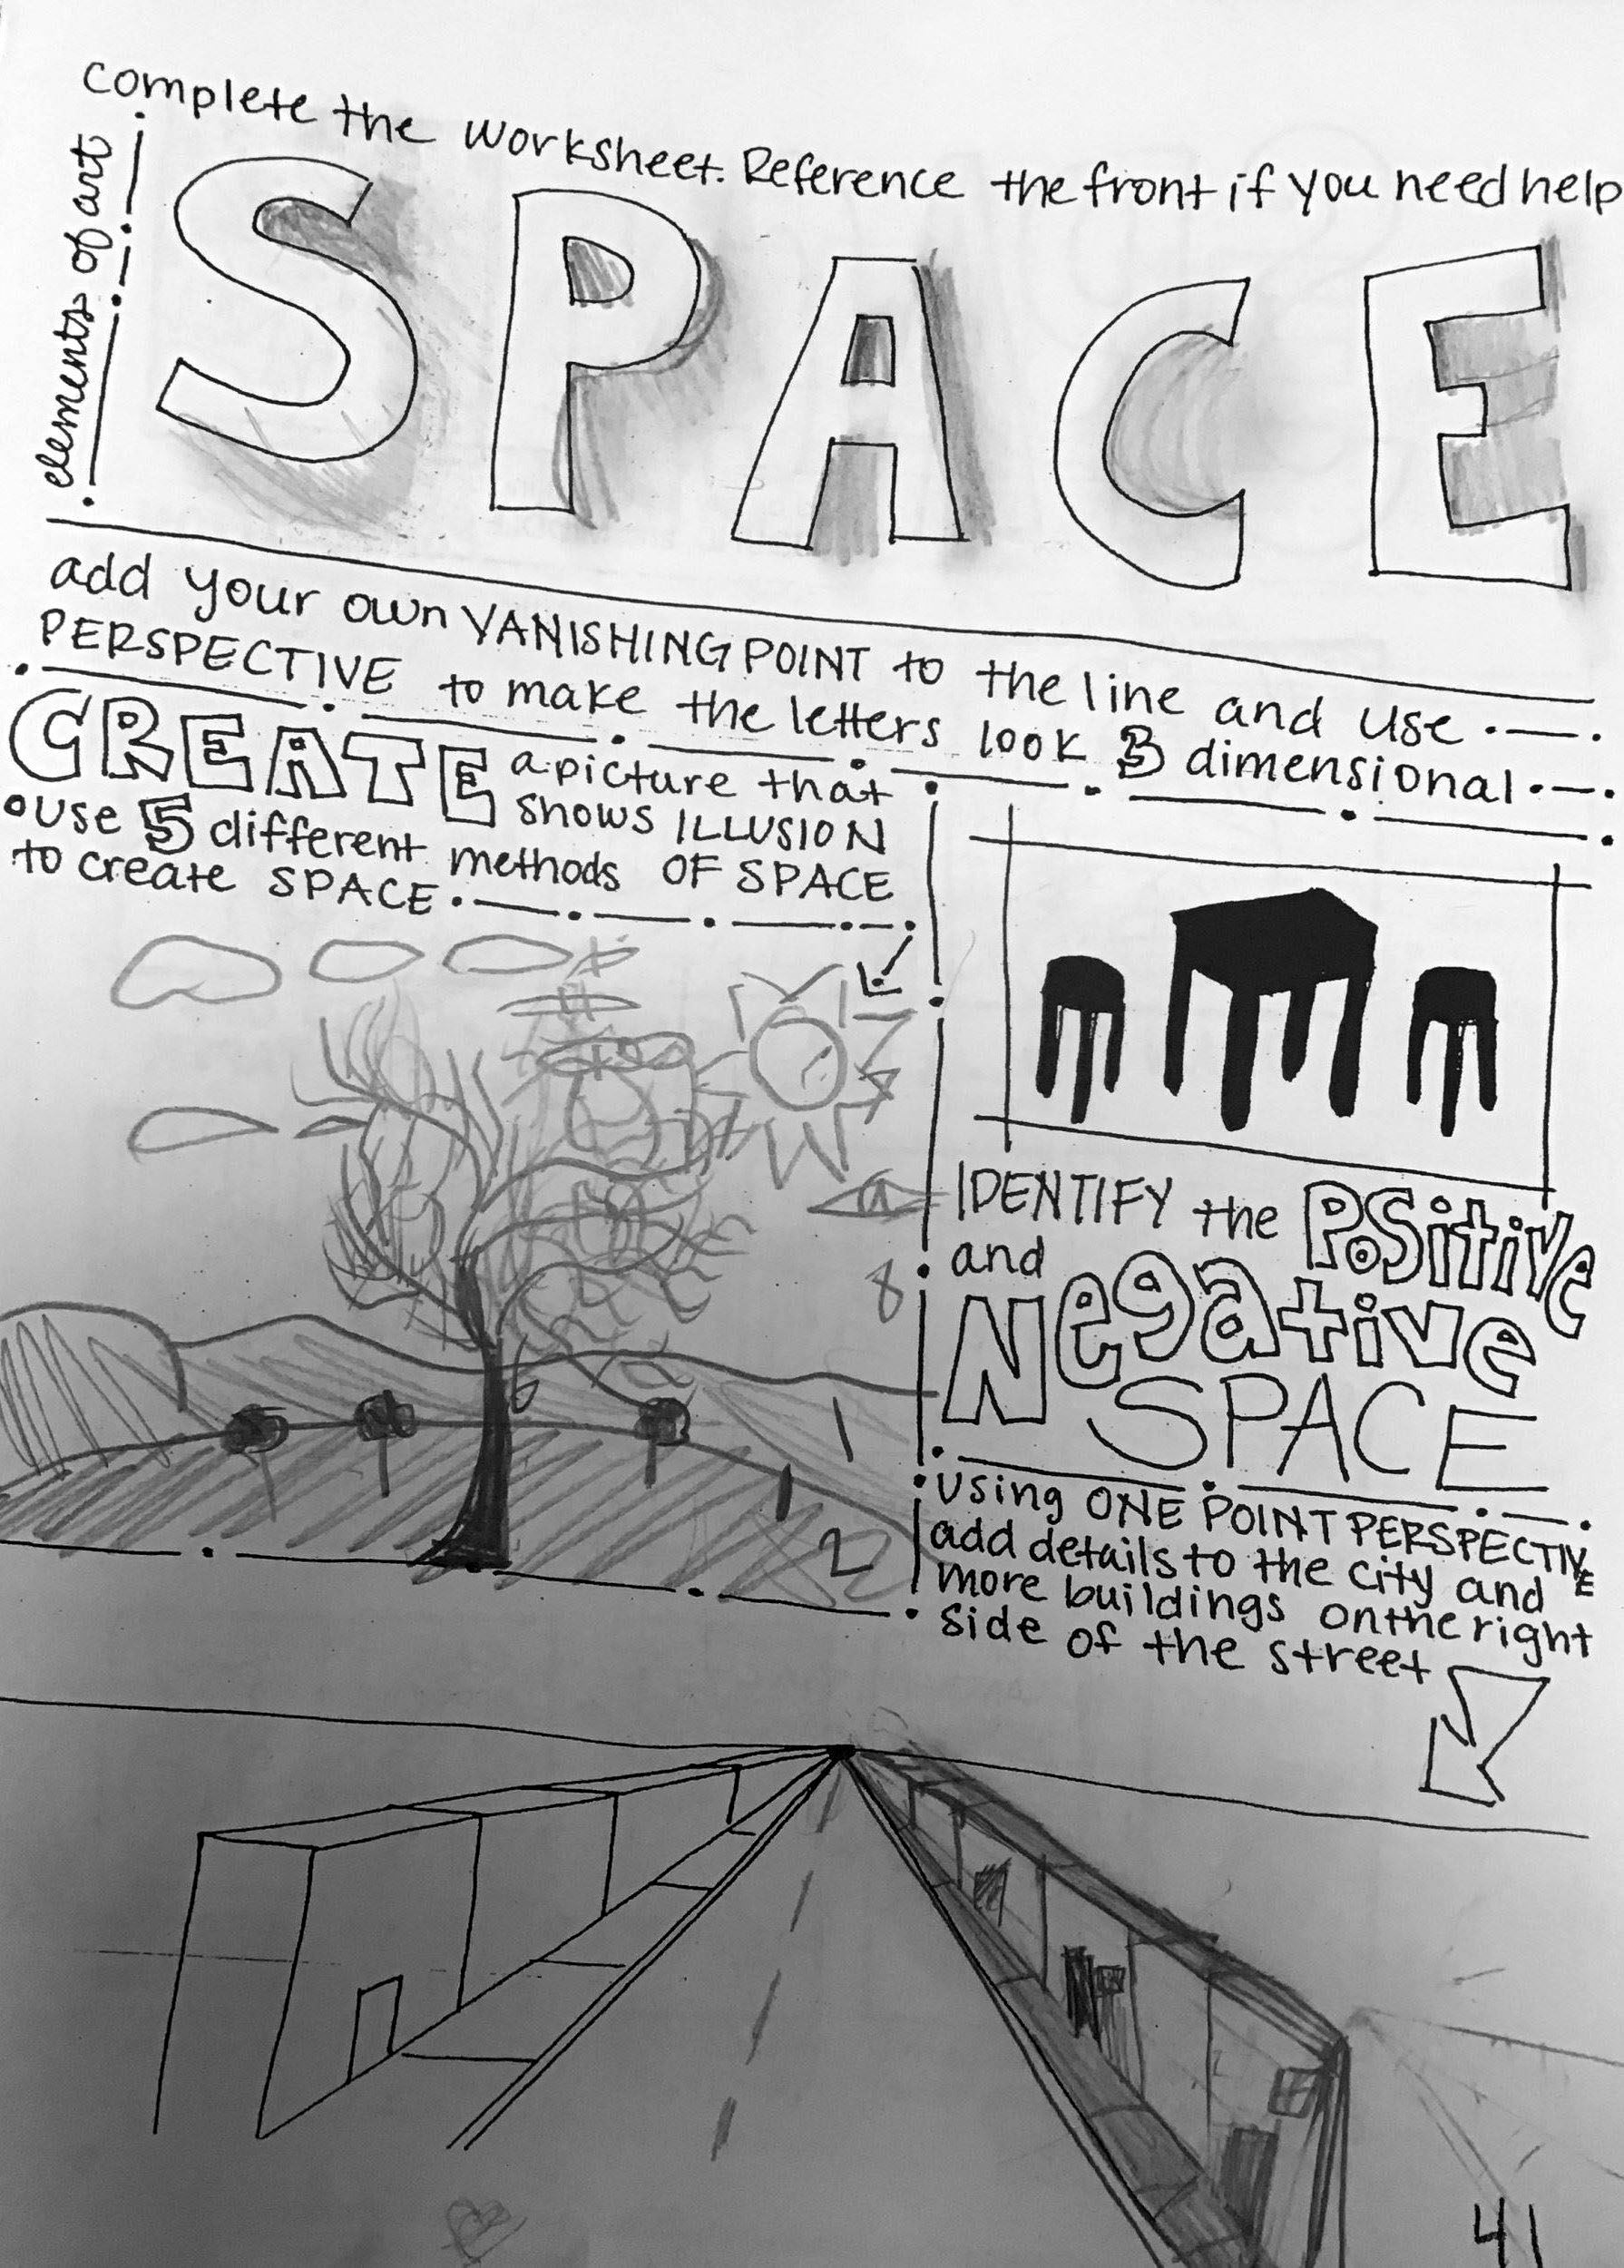 complete the worksheet. Reference the front if you need help
elements of art
SPACE
add your own VANISHING POINT to the line and use
PERSPECTIVE to make the letters look 3 dimensional
CREATE a picture that
shows ILLUSION
OF SPACE
use 5 different methods
to create SPACE
IDENTIFY the Positive
and
Negative
SPACE
using ONE POINT PERSPECTIVE
add details to the city and
more buildings on the right
side of the street
8
6
1
1
2
41